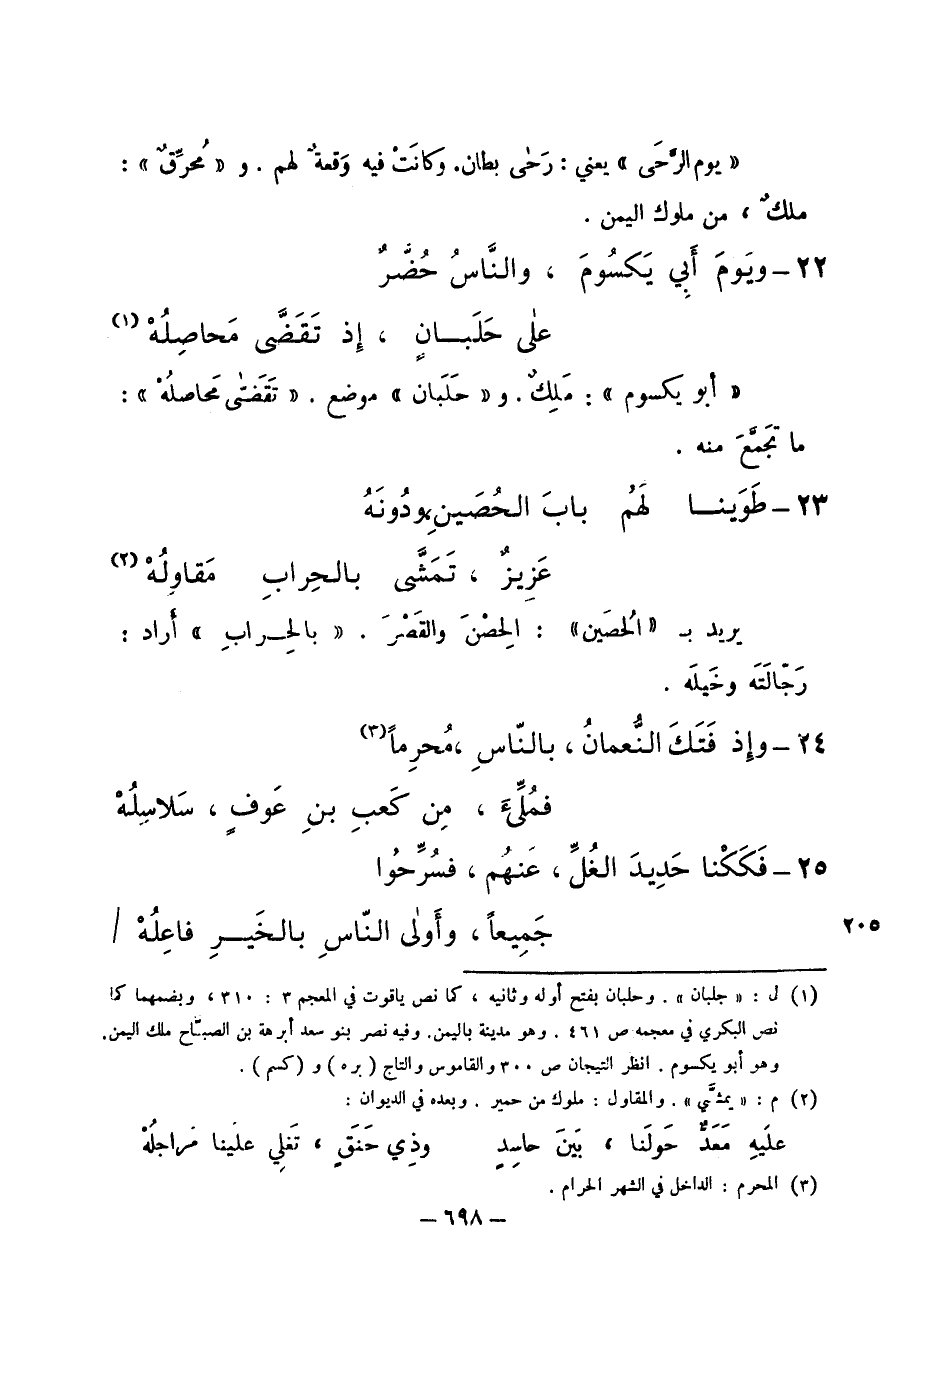 « يوم الرَّحَى » يعني : رَحٰى بطان. وكانَتْ فيه وَقعةٌ لهم . و « مُحرِّقٌ » :
ملكٌ ، من ملوك اليمن .
٢٢ – ويَومَ أَبِي يَكسُومَ ، والنَّاسُ حُضَّرٌ
علٰى حَلَبــانٍ ، إِذ تَقَضَّى مَحاصِلُهْ (١)
« أبو يكسوم » : مَلِكٌ . و « حَلَبان » موضع . « تَقَضّٰى مَحاصلهْ » :
ما تجَمَّعَ منه .
٢٣ – طَوَينــا لَهُم بابَ الحُصَينِ، ودُونَهُ
عَزِيزٌ ، تَمَشَّى بالحِرابِ مَقاوِلُهْ (٢)
يريد بـ « الحُصَين » : الحِصْنَ والقَصْرَ . « بالحِــرابِ » أَراد :
رَجّالَتَه وخَيلَه .
٢٤ – وإِذ فَتَكَ النُّعمانُ ، بالنّاسِ ، مُحرِماً (٣)
فمُلِّئَ ، مِن كَعبِ بنِ عَوفٍ ، سَلاسِلُهْ
٢٥ – فَكَكْنا حَدِيدَ الغُلِّ ، عَنهُم ، فسُرِّحُوا
جَمِيعاً ، وأَولٰى النّاسِ بالخَيــرِ فاعِلُهْ / ٢٠٥
(١) ل : « جلبان » . وحلبان بفتح أوله وثانيه ، كما نص ياقوت في المعجم ٣ : ٣١٠ ، وبضمهما كما
نص البكري في معجمه ص ٤٦١ . وهو مدينة باليمن. وفيه نصر بنو سعد أبرهة بن الصبّاح ملك اليمن.
وهو أبو يكسوم . انظر التيجان ص ٣٠٠ والقاموس والتاج ( بره ) و ( كسم ) .
(٢) م : « يمشَّي » . والمقاول : ملوك من حمير . وبعده في الديوان :
علَيهِ مَعَدٌّ حَولَنا ، بَينَ حاسِدٍ وذِي حَنَقٍ ، تَغلِي علَينا مَراجلُهْ
(٣) المحرم : الداخل في الشهر الحرام .
– ٦٩٨ –